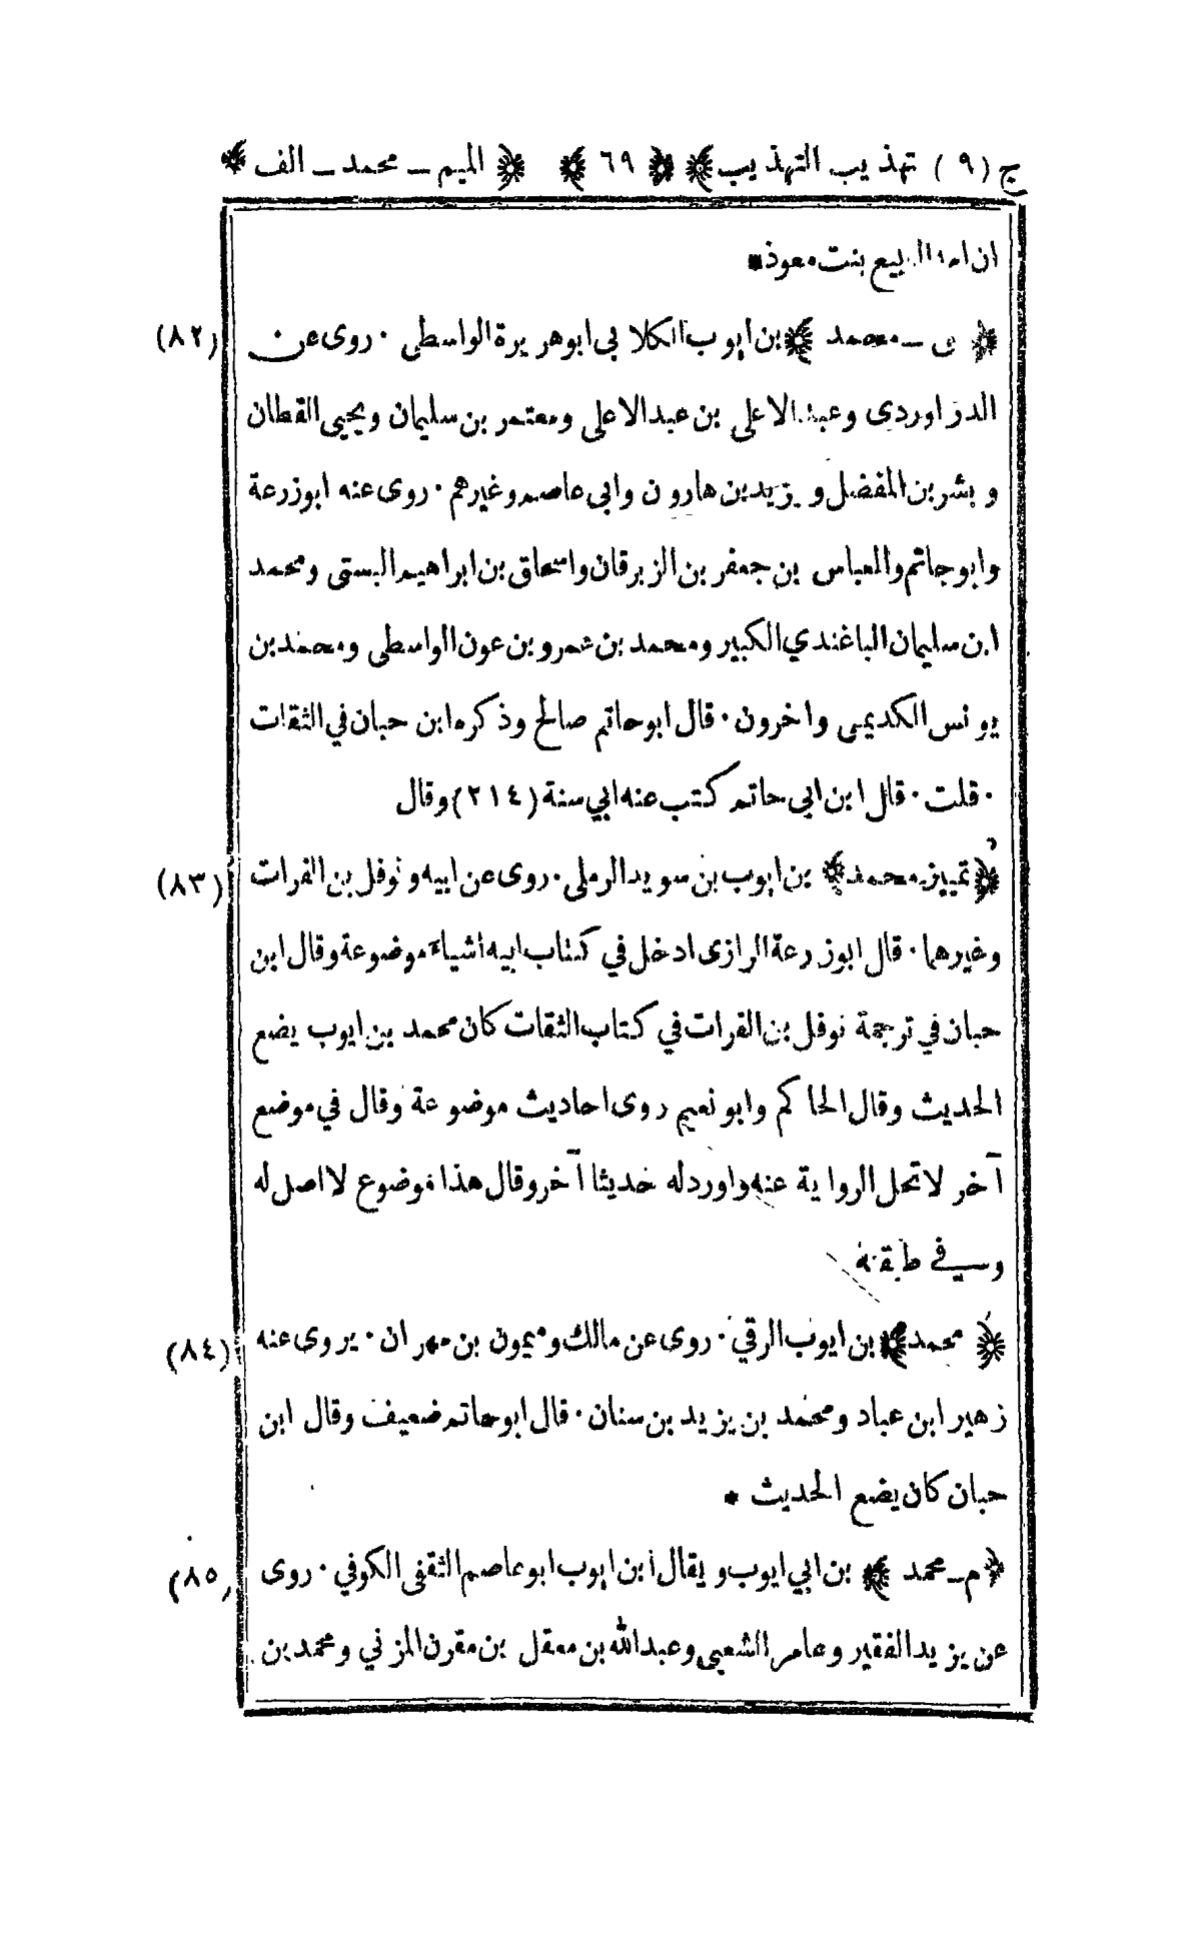 ج (٩) تهذيب التهذيب ٦٩ الميم ـ محمد ـ الف
ان امه الربيع بنت معوذ*
محمد بن ايوب الكلابي ابو هريرة الواسطي ٠ روى عن (٨٢)
الدراوردى وعبد الاعلى بن عبد الاعلى ومعتمر بن سليمان ويحيى القطان
وبشر بن المفضل ويزيد بن هارون وابى عاصم وغيرهم ٠ روى عنه ابو زرعة
وابو حاتم والعباس بن جعفر بن الزبرقان واسحاق بن ابراهيم البستى ومحمد
ابن سليمان الباغندي الكبير ومحمد بن عمرو بن عون الواسطى ومحمد بن
يونس الكديمى واخرون ٠ قال ابو حاتم صالح وذكره ابن حبان في الثقات
٠ قلت ٠ قال ابن ابى حاتم كتب عنه ابي سنة (٢١٤) وقال
تمييز محمد بن ايوب بن سويد الرملى ٠ روى عن ابيه ونوفل بن الفرات (٨٣)
وغيرهما ٠ قال ابو زرعة الرازى ادخل في كتاب ابيه اشياء موضوعة وقال ابن
حبان في ترجمة نوفل بن الفرات في كتاب الثقات كان محمد بن ايوب يضع
الحديث وقال الحاكم وابو نعيم روى احاديث موضوعة وقال في موضع
آخر لا تحل الرواية عنه واورد له حديثا آخر وقال هذا موضوع لا اصل له
وفي طبقته
محمد بن ايوب الرقي ٠ روى عن مالك وميمون بن مهران ٠ يروى عنه (٨٤)
زهير ابن عباد ومحمد بن يزيد بن سنان ٠ قال ابو حاتم ضعيف وقال ابن
حبان كان يضع الحديث *
م ـ محمد بن ابي ايوب ويقال ابن ايوب ابو عاصم الثقفى الكوفي ٠ روى (٨٥)
عن يزيد الفقير وعامر الشعبى وعبد الله بن معقل بن مقرن المزني ومحمد بن